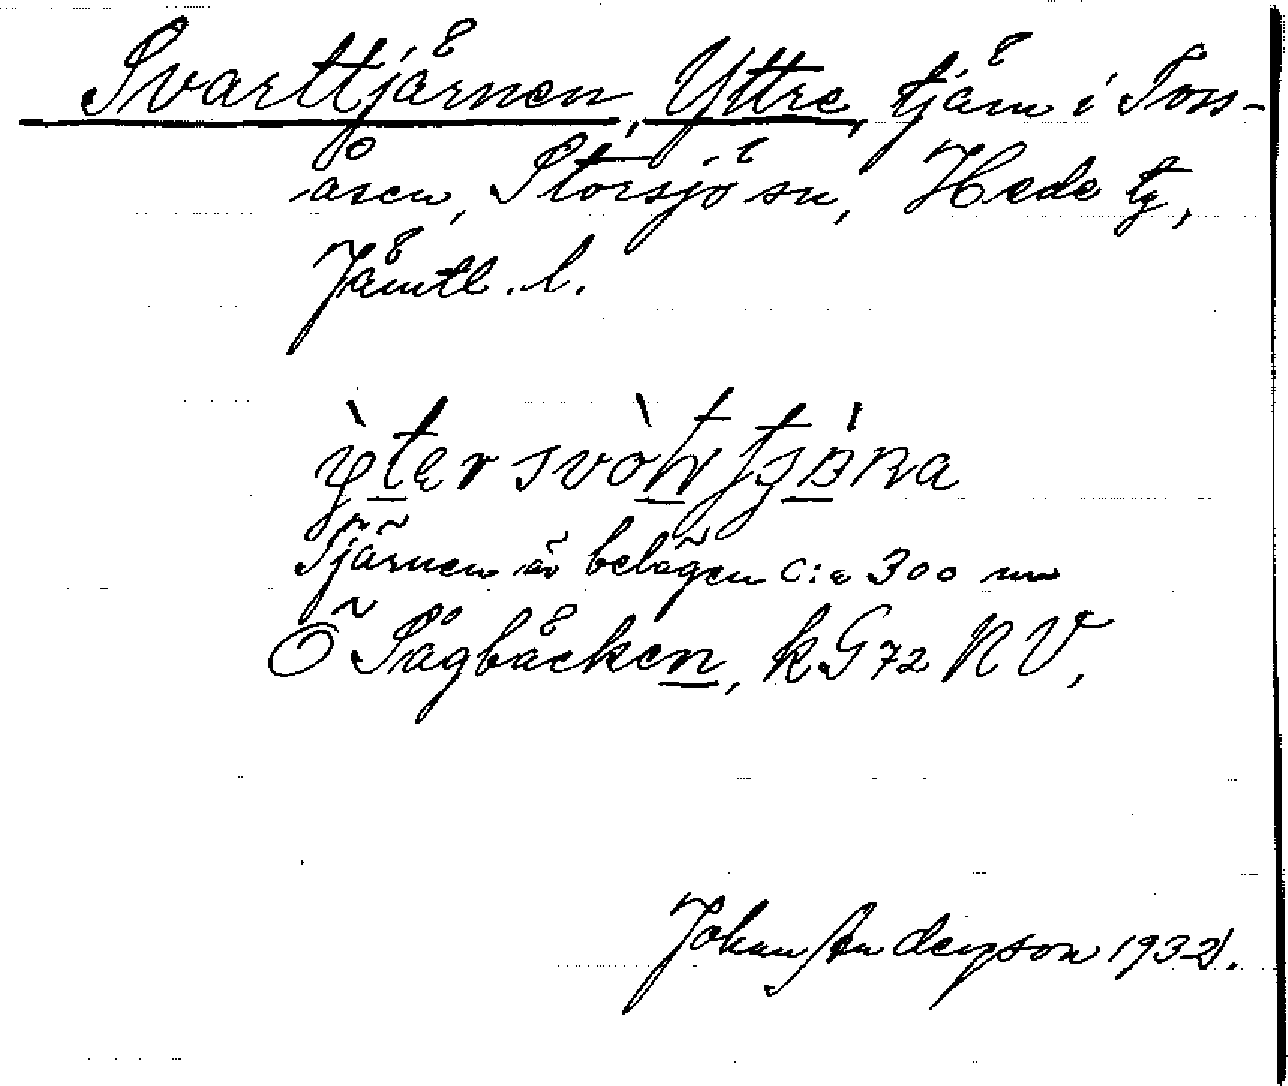 Svarttjärnen, Yttre, tjärn i Tors-
åsen, Storsjö sn, Hede tg,
Jämtl. l.
Tjärnen är belägen c:a 300 m
Ö Sågbäcken, kG72 NV,
Johan Anderson 1932.